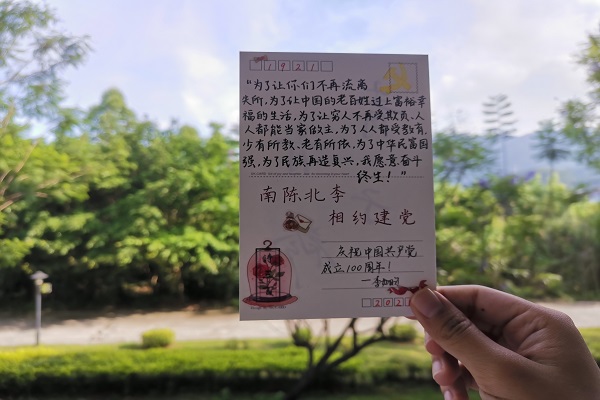 1921
“为了让你们不再流离
失所,为了让中国的老百姓过上富裕幸
福的生活,为了让穷人不再受欺负,人
人都能当家做主,为了人人都受教育,
少有所教、老有所依,为了中华民富国
强,为了民族再造复兴,我愿意奋斗
终生!”
南陈北李
相约建党
庆祝中国共产党
成立100周年!
202